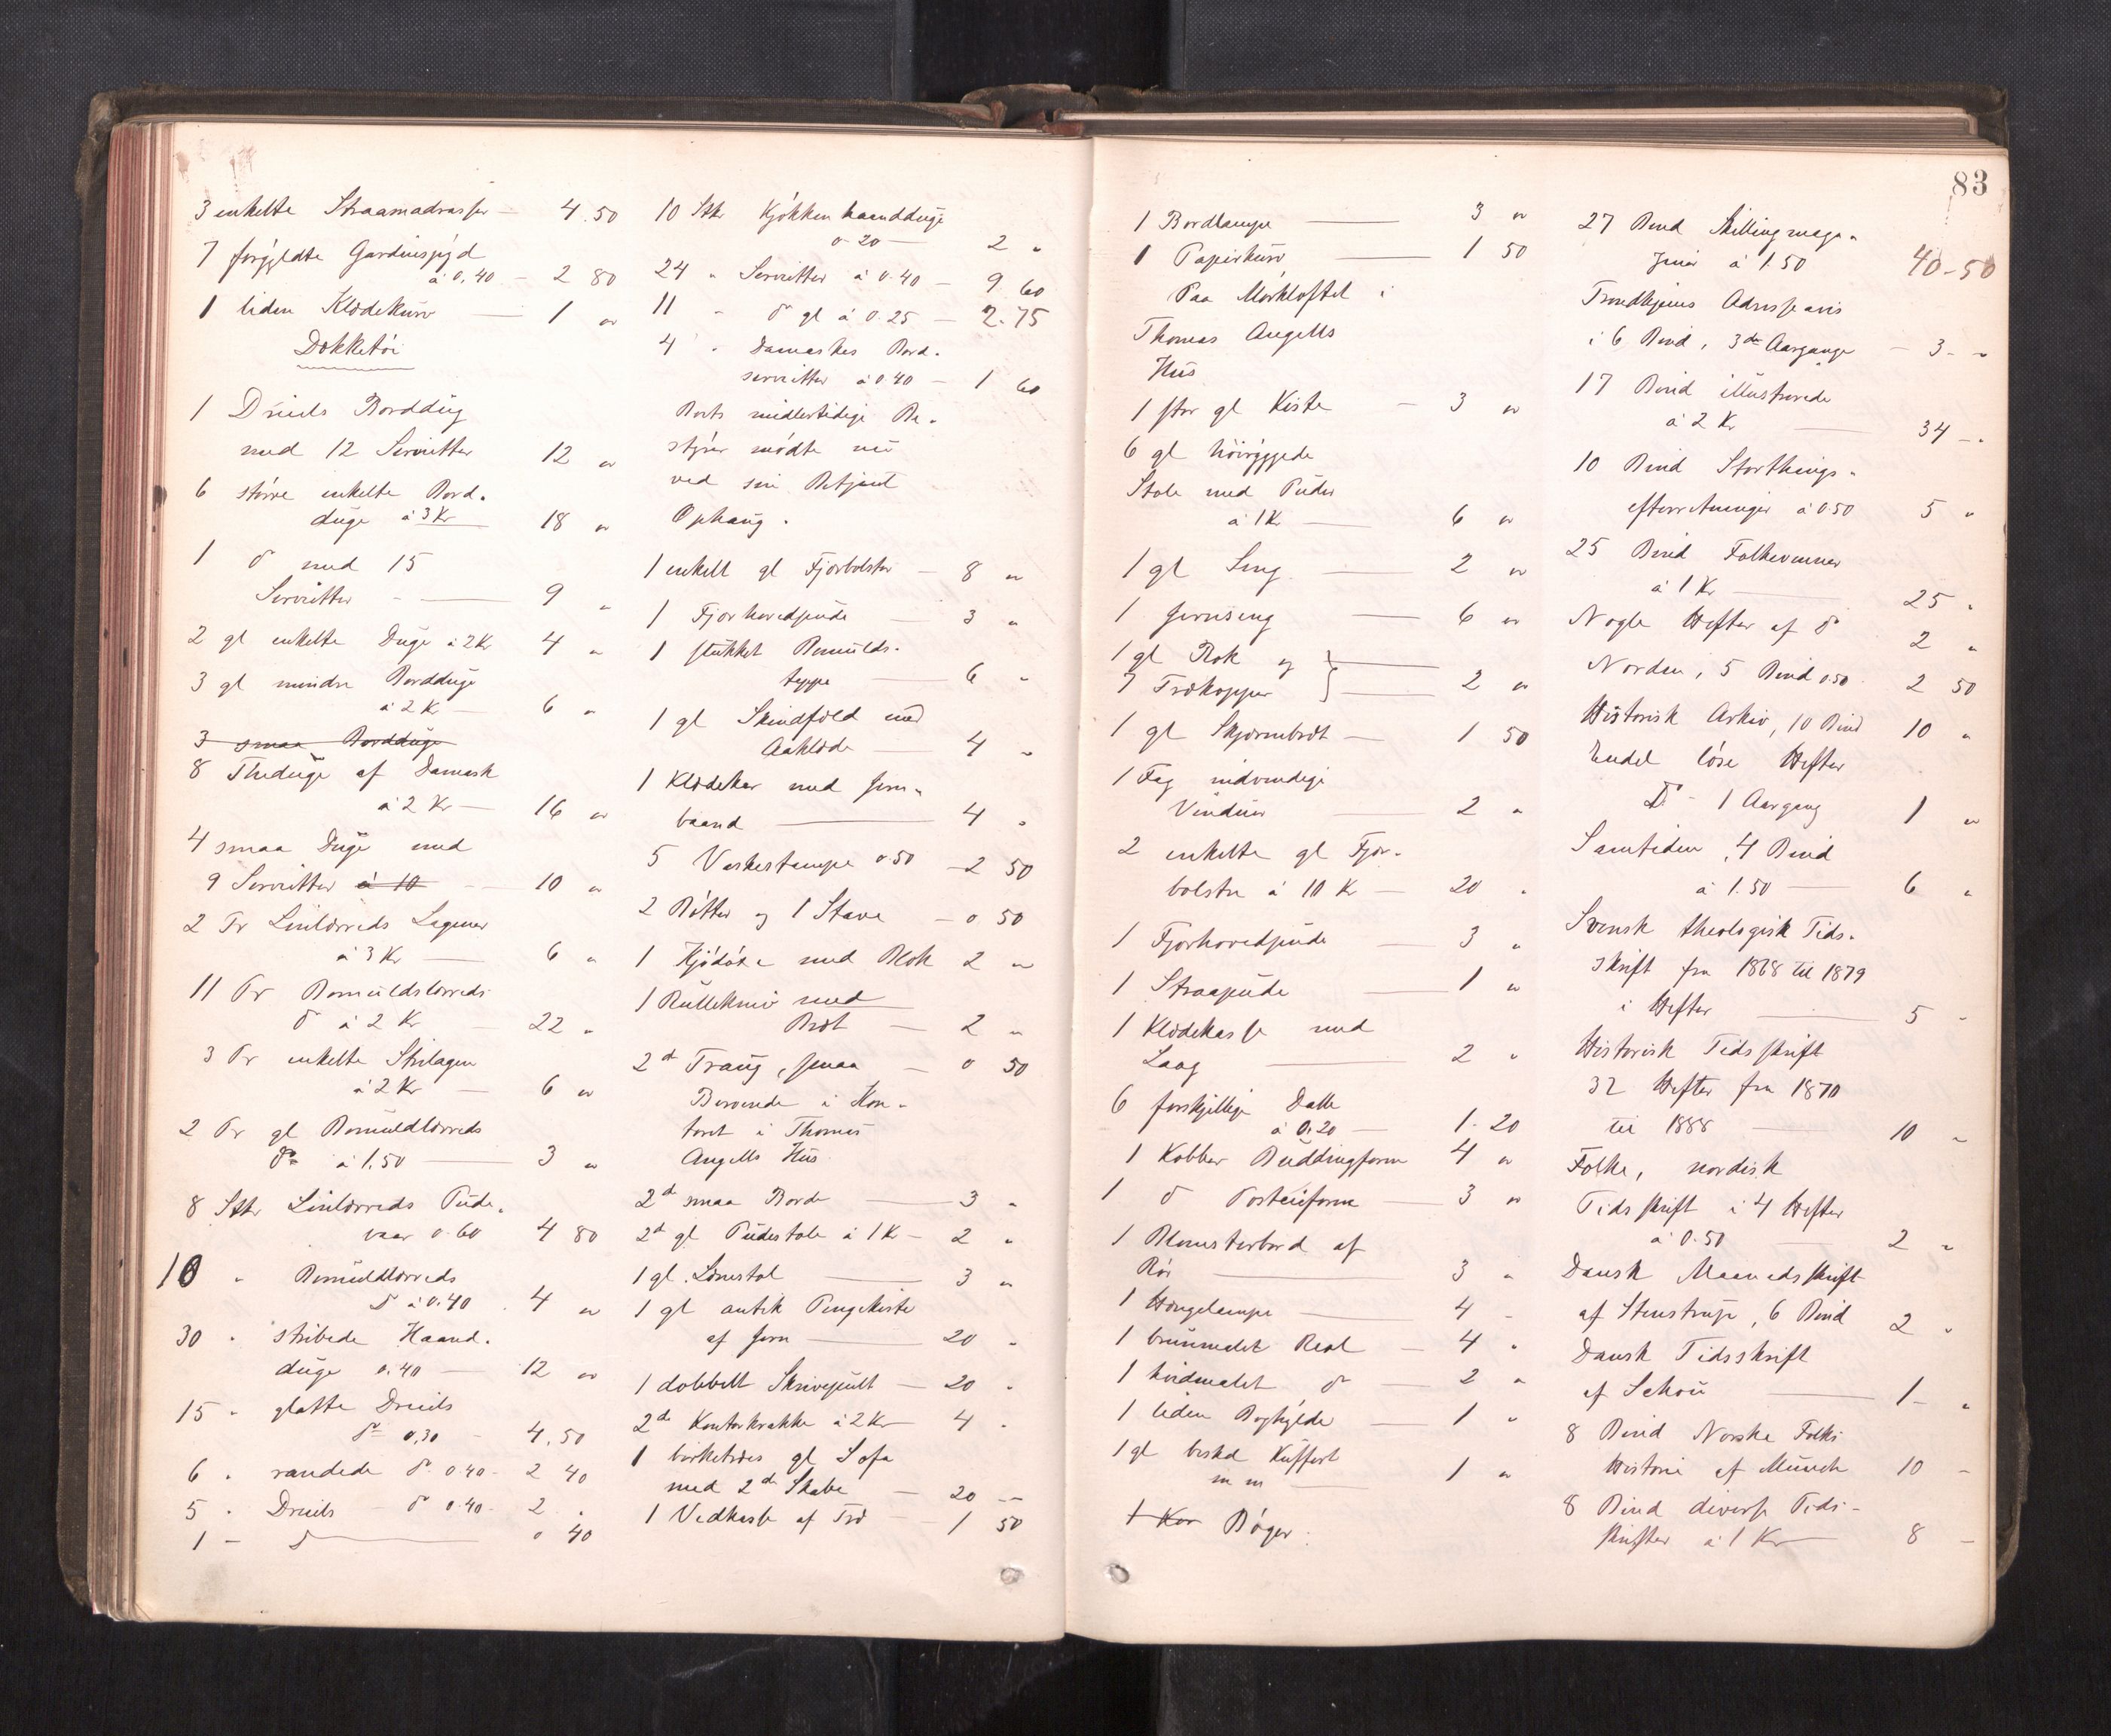 3 enkelte Straamadrasser — 4.50
7 forgyldte Gardinspyd
á 0,40 — 2 80
1 liden Klædekurv — 1 "
Dækketøi
1 Dreiels Borddug
med 12 Servietter 12 "
6 større enkelte Bord-
duge á 3 Kr 18 "
1 do med 15
Servietter — 9 "
2 gl enkelte Duge á 2 Kr 4 "
3 gl mindre Borddüge
á 2 K — 6 "
3 smaa Borddüge
8 Theduge af Damask
á 2 Kr — 16 "
4 smaa Düge med
9 Servietter á 10 — 10 "
2 Pr Linlærreds Lagener
á 3 Kr — 6 "
11 Pr Bomuldslærreds
do á 2 Kr 22 "
3 Pr enkelte Strilagen
á 2 Kr — 6 "
2 Pr gl Bomuldlærreds
do á 1,50 — 3 "
8 Stkr Linlærreds Pude-
vaar 0.60 4 80
10 " Bomuldlærreds
do á 0.40 4 "
30 " stribede Haand-
duge 0.40 — 12 "
15 " glatte Dreiels
do 0,30 - 4.50
6 " randede do 0.40 - 2 40
5 " Dreiels — do 0.40 - 2 "
1 — do — 0 40
10 Stkr Kjøkkenhaandduge
0-20 — 2 "
24 " Servietter á 0.40 — 9 60
11 " do gl á 0.25 — 2.75
4 " Damaskes Bord-
servietter á 0.40 — 1 60
Boets midlertidige Be-
styrer mødte nu
ved sin Betjent
Ophaug.
1 enkelt gl Fjærbolster — 8 "
1 Fjærhovedpude — 3 "
1 stukket Bomulds-
teppe — 6 "
1 gl Skindfæld med
Aaklæde — 4 "
1 Klædekar med Jern-
baand — 4 "
5 Vaskestampe 0.50 — 2 50
2 Bøtter og 1 Stave — 0 50
1 Kjødøxe med Blok 2 "
1 Rullekniv med
Bræt — 2 "
2de Traug, smaa — 0 50
Beroende i Kon-
toret i Thomas
Angells Hus
2de smaa Borde — 3 "
2de gl Pudestole á 1 Kr — 2 "
1 gl. Lænestol — 3 "
1 gl antik Pengekiste
af Jern — 20 "
1 dobbelt Skrivepult — 20 "
2de Kontorkrakke á 2 Kr — 4 "
1 birketræes gl Sofa
med 2de Skabe — 20 —
1 Vedkasse af Træ — 1 50
83
1 Bordlampe — 3 "
1 Papirkurv — 1 50
Paa Mørkloftet i
Thomas Angells
Hus
1 stor gl Kiste — 3 "
6 gl høiryggede
Stole med Puder
á 1 Kr — 6 "
1 gl Seng — 2 "
1 Jernseng — 6 "
1 gl Rok og
7 Trækopper — 2 "
1 gl Skjærmbræt — 1 50
1 Fag indvendige
Vinduer — 2 "
2 enkelte gl Fjær-
bolstre á 10 Kr — 20 "
1 Fjærhovedpude — 3 "
1 Straapude — 1 "
1 Klædekasse med
Laag — 2 "
6 forskjellige Dalle
á 0.20 — 1.20
1 Kobber Buddingform 4 "
1 do Posteiform — 3 "
1 Blomsterbord af
Rør — 3 "
1 Hængelampe — 4 "
1 brunmalet Reol — 4 "
1 hvidmalet do — 2 "
1 liden Boghylde — 1 "
1 gl beslaaet Kuffert
m m — 1 "
1 Kar Bøger.
27 Bind Skillingmaga-
siner á 1.50 40-50
Trondhjems Adresseavis
i 6 Bind, 3de Aargange — 3 - "
17 Bind illustrerede
á 2 Kr — 34 - "
10 Bind Storthings-
efterretninger á 0.50 5 "
25 Bind Folkevennen
á 1 Kr — 25 "
Nogle Hefter af do 2 "
Norden, 5 Bind 0.50 2 50
Historisk Arkiv, 10 Bind 10 "
Endel løse Hefter
Do - 1 Aargang 1 "
Samtiden, 4 Bind
á 1.50 — 6 "
Svensk theologisk Tids-
skrift fra 1868 til 1879
i Hefter — 5 "
Historisk Tidsskrift
32 Hefter fra 1870
til 1888 — 10 "
Folke, nordisk
Tidsskrift i 4 Hefter
á 0.50 — 2 "
Dansk Maanedsskrift
af Steenstrup, 6 Bind 2 "
Dansk Tidsskrift
af Schou — 1 - "
8 Bind Norske Folks
Historie af Munch 10 -
8 Bind diverse Tids-
skrifter á 1 Kr — 8 -